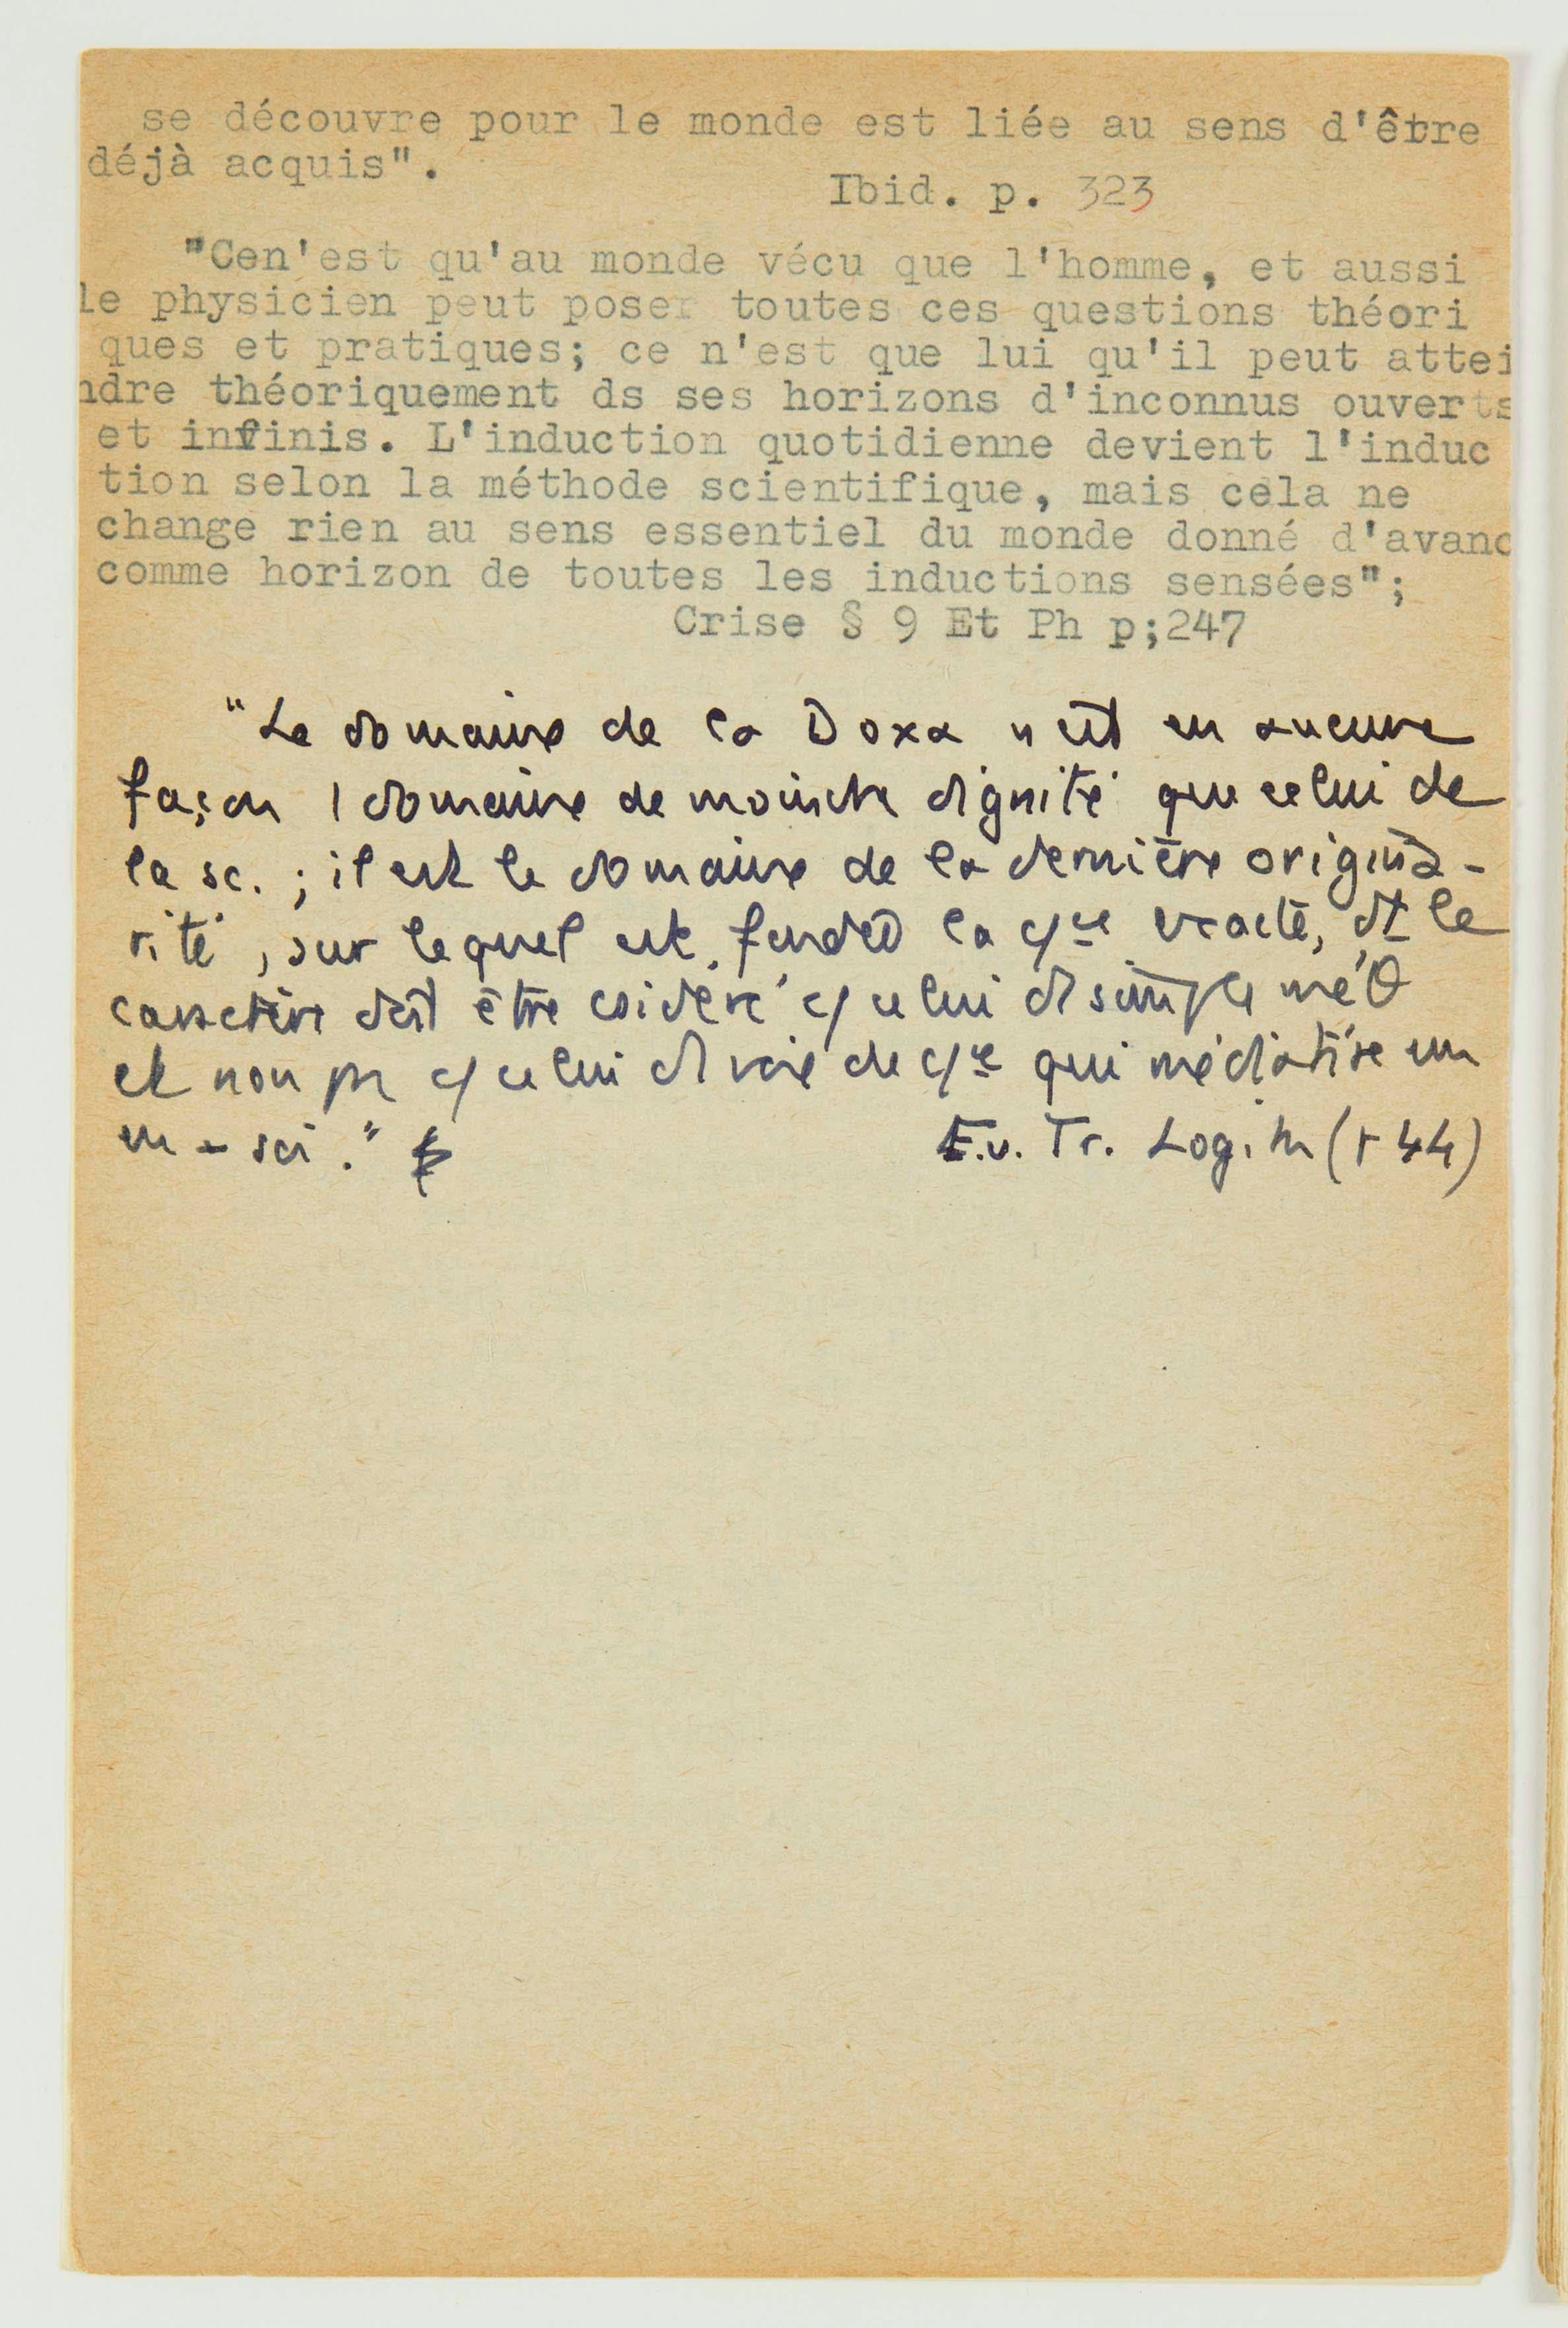 se découvre pour le monde est liée au sens d'être
déjà acquis".
Ibid. p. 323
"Cen'est qu'au monde vécu que l'homme, et aussi
le physicien peut poser toutes ces questions théori
ques et pratiques; ce n'est que lui qu'il peut attei
ndre théoriquement ds ses horizons d'inconnus ouverts
et infinis. L'induction quotidienne devient l'induc
tion selon la méthode scientifique, mais cela ne
change rien au sens essentiel du monde donné d'avanc
comme horizon de toutes les inductions sensées";
Crise § 9 Et Ph p;247
"Le domaine de la Doxa n'est en aucune
façon 1 domaine de moindre dignité que celui de
la sc. ; il est le domaine de la dernière origina-
rité, sur lequel est fondée la cque exacte, dt le
caractère doit être csidéré c/ celui d simple méθ
et non pr c/ celui d voie de cque qui médiatise un
en-soi."
E.u. Tr. Logik (p 44)